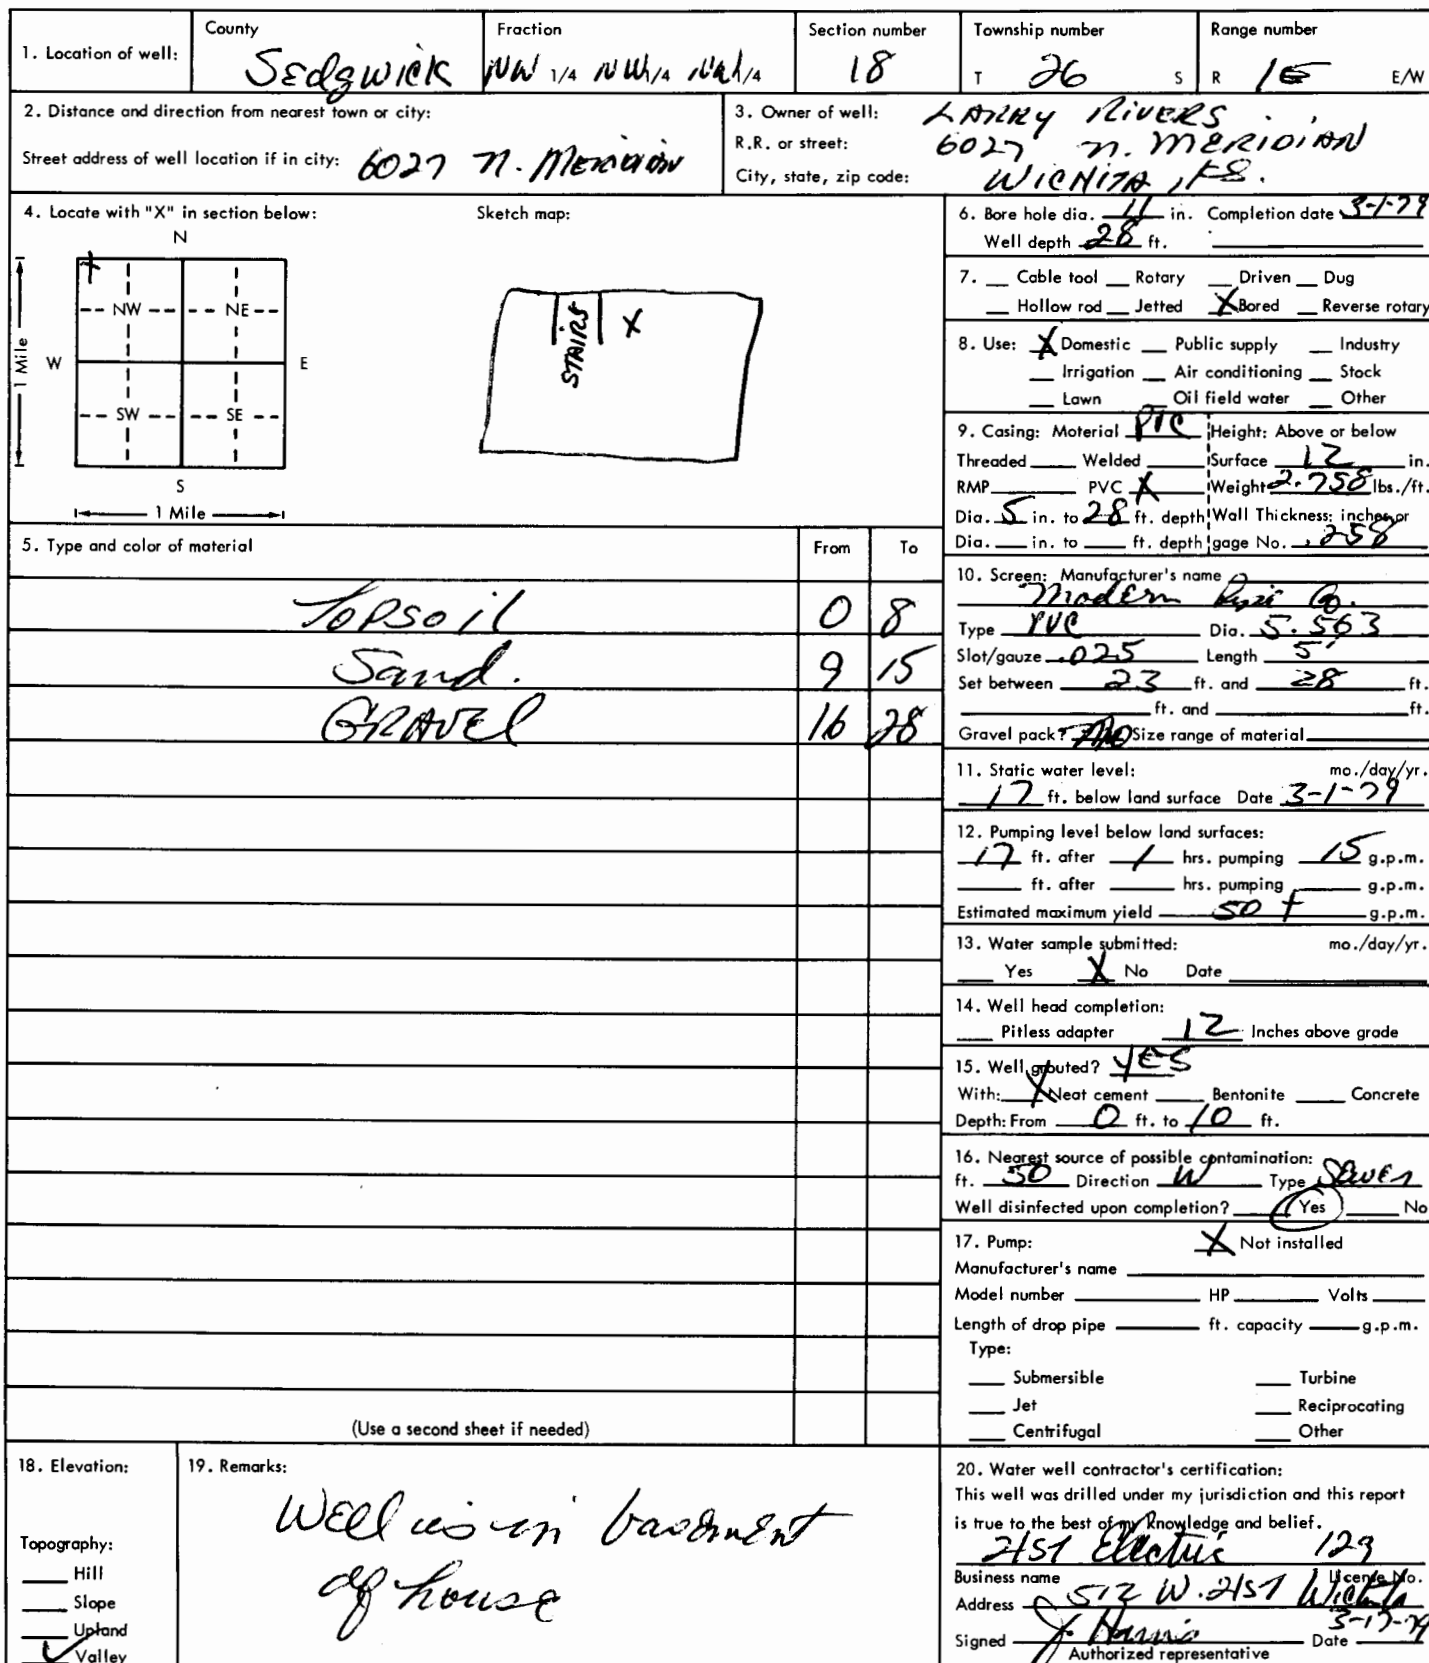 1. Location of well:
County
Sedgwick
Fraction
NW 1/4 NW 1/4 NW 1/4
Section number
18
Township number
T 26 S
Range number
R 1E E/W
2. Distance and direction from nearest town or city:
Street address of well location if in city: 6027 N. Meridian
3. Owner of well: LARRY RIVERS
R.R. or street: 6027 N. MERIDIAN
City, state, zip code: WICHITA, KS.
4. Locate with "X" in section below:
Sketch map:
N
X
NW NE
W E
SW SE
S
1 Mile
1 Mile
STAIRS X
5. Type and color of material From To
Topsoil 0 8
Sand. 9 15
GRAVEL 16 28
(Use a second sheet if needed)
6. Bore hole dia. 11 in. Completion date 3-1-79
Well depth 28 ft.
7. __ Cable tool __ Rotary __ Driven __ Dug
__ Hollow rod __ Jetted X Bored __ Reverse rotary
8. Use: X Domestic __ Public supply __ Industry
__ Irrigation __ Air conditioning __ Stock
__ Lawn __ Oil field water __ Other
9. Casing: Material PVC Height: Above or below
Threaded ___ Welded ___ Surface 12 in.
RMP ___ PVC X Weight 2.758 lbs./ft.
Dia. 5 in. to 28 ft. depth Wall Thickness: inches or
Dia. ___ in. to ___ ft. depth gage No. .258
10. Screen: Manufacturer's name
Modern Co.
Type PVC Dia. 5.563
Slot/gauze .025 Length 5'
Set between 23 ft. and 28 ft.
___ ft. and ___ ft.
Gravel pack? No Size range of material
11. Static water level: mo./day/yr.
17 ft. below land surface Date 3-1-79
12. Pumping level below land surfaces:
17 ft. after 1 hrs. pumping 15 g.p.m.
___ ft. after ___ hrs. pumping ___ g.p.m.
Estimated maximum yield 50 + g.p.m.
13. Water sample submitted: mo./day/yr.
__ Yes X No Date
14. Well head completion:
__ Pitless adapter 12 Inches above grade
15. Well grouted? YES
With: X Neat cement ___ Bentonite ___ Concrete
Depth: From 0 ft. to 10 ft.
16. Nearest source of possible contamination:
ft. 50 Direction W Type Sewer
Well disinfected upon completion? ___ Yes ___ No
17. Pump: X Not installed
Manufacturer's name
Model number ___ HP ___ Volts ___
Length of drop pipe ___ ft. capacity ___ g.p.m.
Type:
__ Submersible __ Turbine
__ Jet __ Reciprocating
__ Centrifugal __ Other
18. Elevation:
Topography:
__ Hill
__ Slope
__ Upland
✓ Valley
19. Remarks:
Well is in basement
of house
20. Water well contractor's certification:
This well was drilled under my jurisdiction and this report
is true to the best of my knowledge and belief.
21st Electric 129
Business name License No.
Address 512 W. 21st Wichita
Signed J. Harris Date 3-17-79
Authorized representative